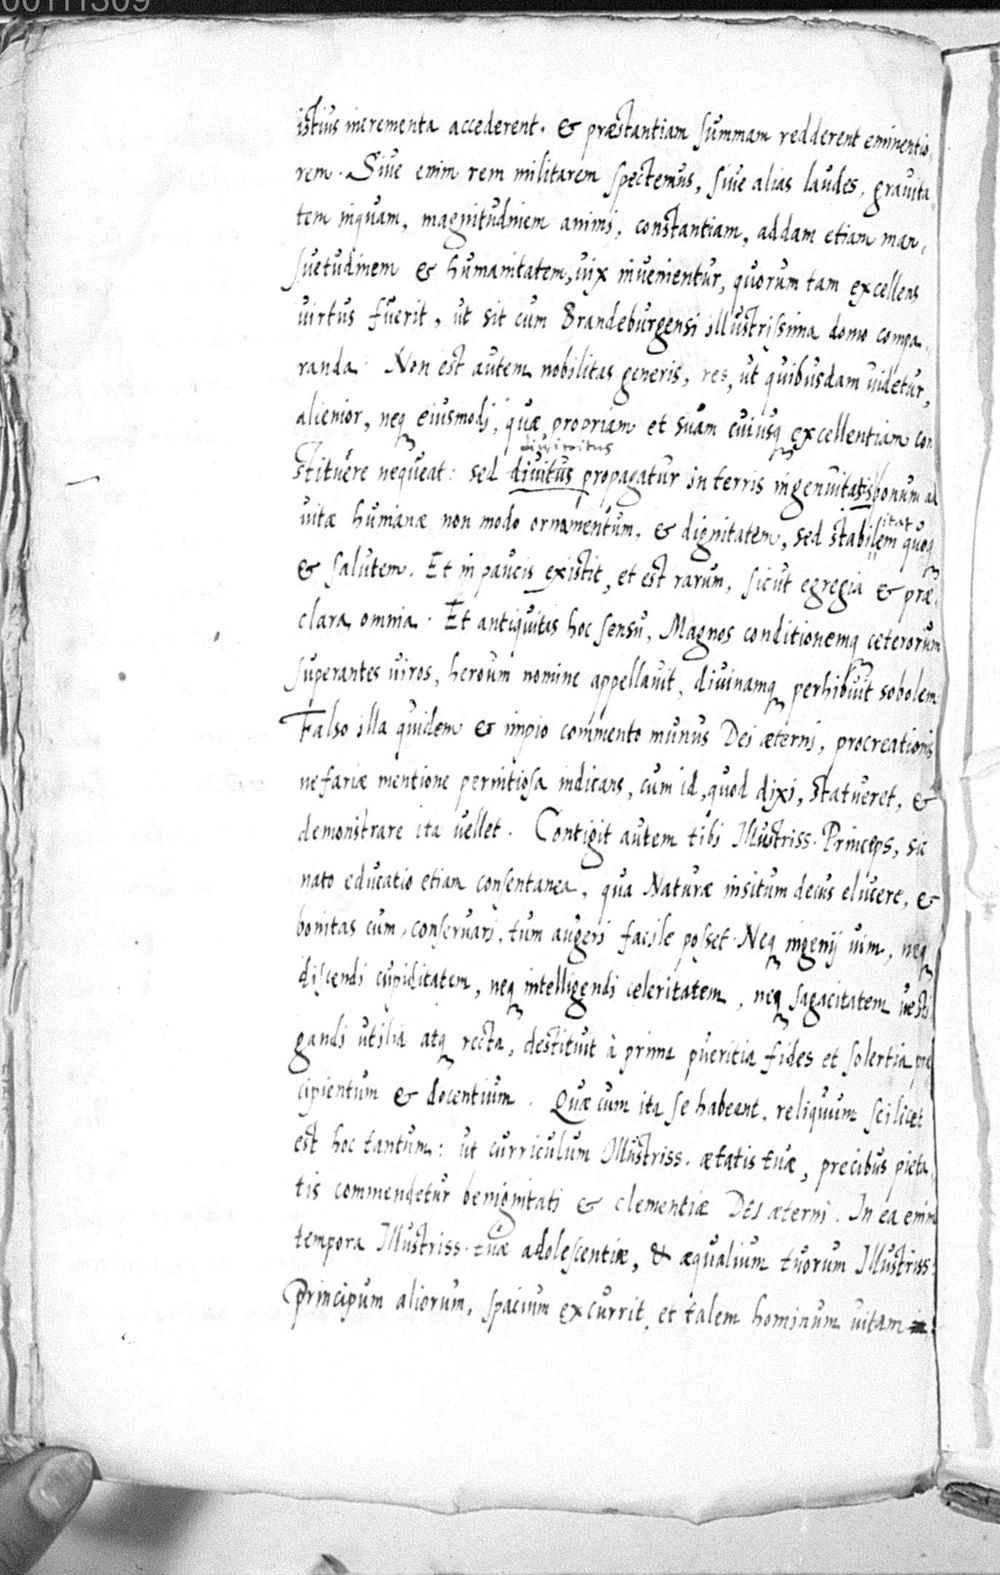 00111309
istius incrementa accederent. & præstantiam summam redderent eminentio,
rem. Siue enim rem militarem spectemus, siue alias laudes, grauita,
tem inquam, magnitudinem animi, constantiam, addam etiam man,
suetudinem & humanitatem, uix inuenientur, quorum tam excellens
uirtus fuerit, ut sit cum Brandeburgensi illustrissima domo compa,
randa. Non est autem nobilitas generis, res, ut quibusdam uidetur,
alienior, neq eiusmodi, quæ propriam et suam cuiusq excellentiam con
diuinitus
stituere nequeat: sed diuitus propagatur in terris ingenuitatis bonum ad
itat
uitæ humanæ non modo ornamentum, & dignitatem, sed stabilem quoq
& salutem. Et in paucis existit, et est rarum, sicut egregia & præ,
clara omnia. Et antiquitis hoc sensu, Magnos conditionemq ceterorum
superantes uiros, heroum nomine appellauit, diuinamq perhibuit sobolem.
Falso illa quidem & impio commento munus Dei æterni, procreationis
nefariæ mentione pernitiosa indicans, cum id, quod dixi, statueret, &
demonstrare ita uellet. Contigit autem tibi Illustriss. Princeps, sic
nato educatio etiam consentanea, qua Naturæ insitum decus elucere, &
bonitas cum conseruari, tum augeri facile posset. Neq ingenij uim, neq
discendi cupiditatem, neq intelligendi celeritatem, neq sagacitatem uesti
gandi utilia atq recta, destituit à prima pueritia fides et solertia præ
cipientum & docentium. Quæ cum ita se habeant, reliquum scilicet
est hoc tantum: ut curriculum Illustriss. ætatis tuæ, precibus pieta,
tis commendetur benignitati & clementiæ Dei æterni. In ea enim
tempora Illustriss. tuæ adolescentiæ, & æqualium tuorum Illustriss.
Principum aliorum, spacium excurrit, et talem hominum uitam